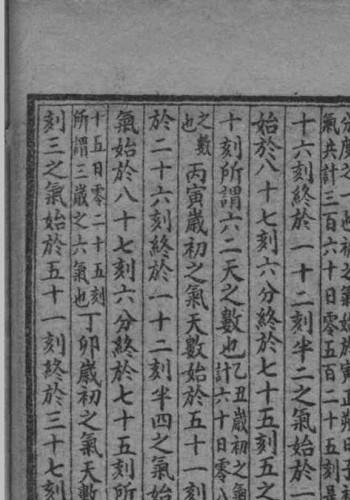 分度之一也初之氣始於寅正朔日子
氣共計三百六十日零五百二十五刻是
十六刻終於一十二刻半二之氣始於一
始於八十七刻六分終於七十五刻五之
十刻所謂六二天之數也乙丑歲初之氣
計六十日零八
之數也丙寅歲初之氣天數始於五十一刻
於二十六刻終於一十二刻半四之氣始
氣始於八十七刻六分終於七十五刻所
十五日零二十五刻
所謂三歲之六氣也丁卯歲初之氣天數
刻三之氣始於五十一刻終於三十七刻